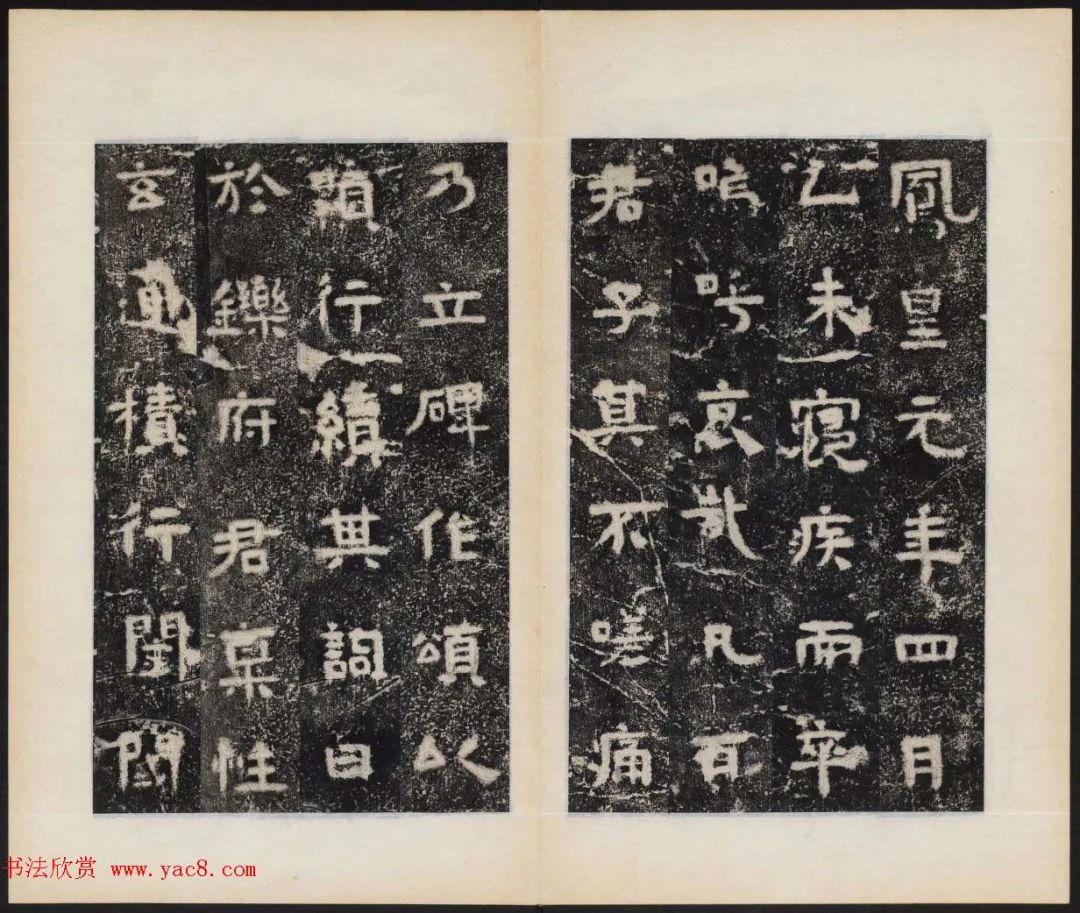 鳳皇元年四月
乙未寢疾而卒
嗚呼哀哉凡百
君子莫不嗟痛
乃立碑作頌以
顯行績其詞曰
於鑠府君稟性
玄通積行閨
书法欣赏 www.yac8.com